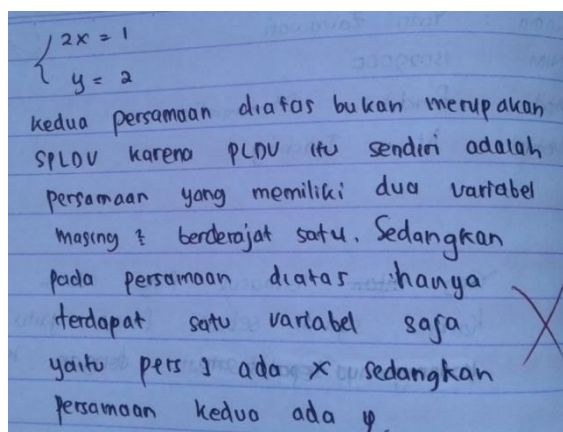 2x = 1
y = 2
kedua persamaan diatas bukan merupakan
SPLDV karena PLDV itu sendiri adalah
persamaan yang memiliki dua variabel
masing2 berderajat satu. Sedangkan
pada persamaan diatas hanya
terdapat satu variabel saja
yaitu pers 1 ada x sedangkan
persamaan kedua ada y.